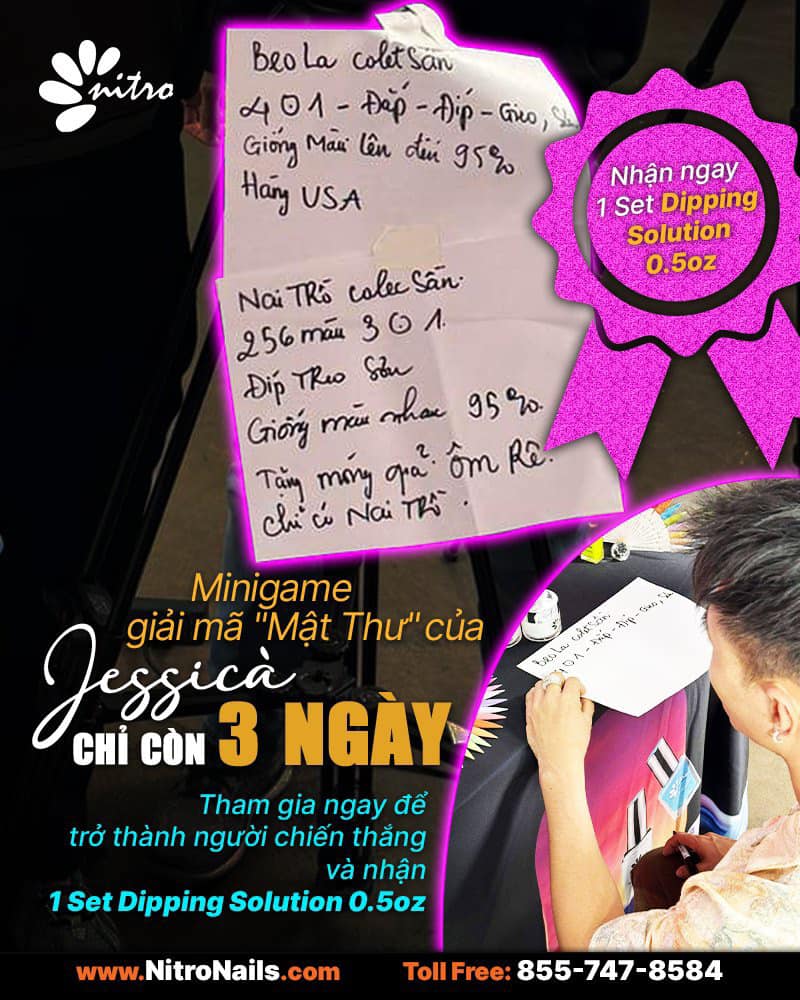 nitro
Beo La colet Sãn
401 - Đắp - Đíp - Gieo, Sơn
Giống Màu lên đến 95%
Hàng USA
Nai TRỒ colec Sần.
256 màu 301.
Đíp TReo Sơn
Giống màu nhau 95%.
Tặng móng quả. Ôm Rê.
chỉ có Nai TRỒ.
Nhận ngay
1 Set Dipping
Solution
0.5oz
Minigame
giải mã "Mật Thư" của
Jessicà
CHỈ CÒN 3 NGÀY
Tham gia ngay để
trở thành người chiến thắng
và nhận
1 Set Dipping Solution 0.5oz
Beo La colet Sãn
401 - Đắp - Đíp - Gieo,
www.NitroNails.com Toll Free: 855-747-8584